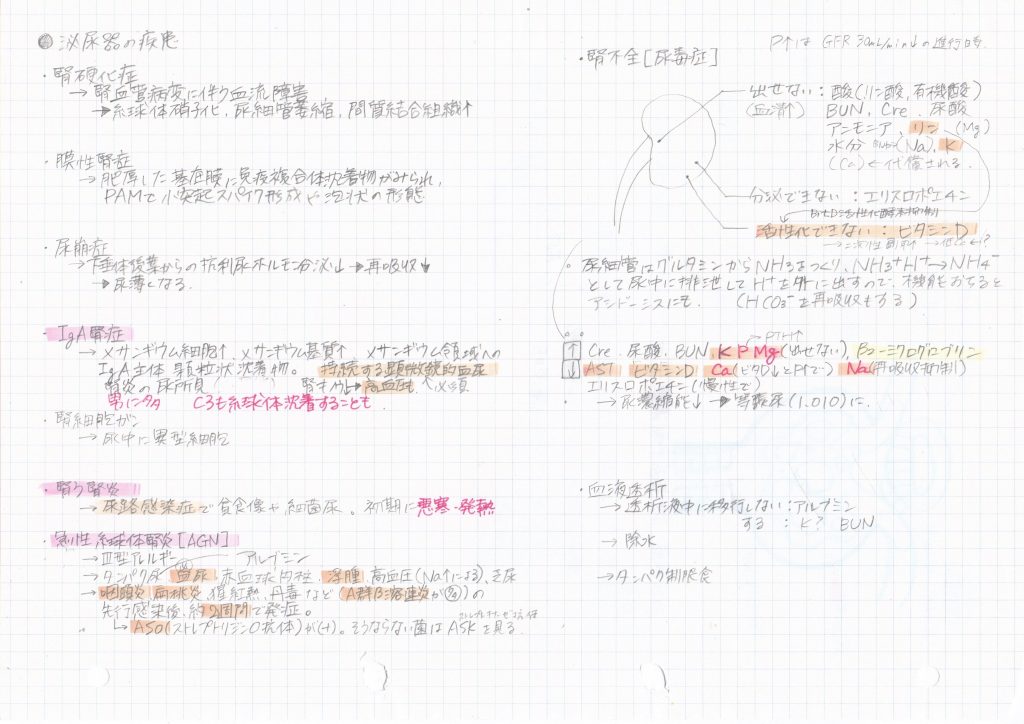 ● 泌尿器の疾患
・腎硬化症
→腎血管病変に伴う血流障害
→糸球体硝子化、尿細管萎縮、間質結合組織↑
・膜性腎症
→肥厚した基底膜に免疫複合体沈着物がみられ、
PAMで小突起スパイク形成や泡状の形態
・尿崩症
→下垂体後葉からの抗利尿ホルモン分泌↓→再吸収↓
→尿薄くなる.
・IgA腎症
→メサンギウム細胞↑、メサンギウム基質↑ メサンギウム領域への
IgA主体顆粒状沈着物。持続する顕微鏡的血尿
腎炎の尿所見 高血圧も 必須
男に多 C3も糸球体沈着することも.
・腎細胞がン
→尿中に異型細胞
・腎う腎炎
→尿路感染症で貪食像や細菌尿。初期に悪寒・発熱
・急性糸球体腎炎[AGN]
→Ⅲ型アレルギー アルブミン
→タンパク尿 血尿、赤血球円柱、浮腫、高血圧(Na↑による)、乏尿
→咽頭炎、扁桃炎、猩紅熱、丹毒など(A群β溶連菌が多)の
先行感染後、約2週間で発症。
ストレプトキナーゼ抗体
↳ASO(ストレプトリジンO抗体)が(+)。そうならない菌はASKを見る.
P↑は GFR 30mL/min↓の進行時.
・腎不全[尿毒症]
出せない：酸(リン酸,有機酸)
(血清↑) BUN, Cre. 尿酸
アンモニア、リン、(Mg)
水分 (Na)、K
(Ca)←代償される.
分泌できない：エリスロポエチン
ビタD活性化酵素抑制
活性化できない：ビタミンD
。尿細管はグルタミンからNH3をつくり、NH3+H+→NH4-
として尿中に排泄してH+を外に出すので、機能おちると
アシドーシスにも. (HCO3-を再吸収もする)
PTH↑
↑ Cre. 尿酸. BUN K P Mg(出せない), β2-ミクログロブリン
↓ AST ビタミンD Ca(ビタD↓とP↑で) Na(再吸収抑制)
エリスロポエチン(慢性で)
・ →尿濃縮能↓→等張尿(1.010)に.
・血液透析
→透析液中に移行しない：アルブミン
する：K? BUN
→除水
→タンパク制限食